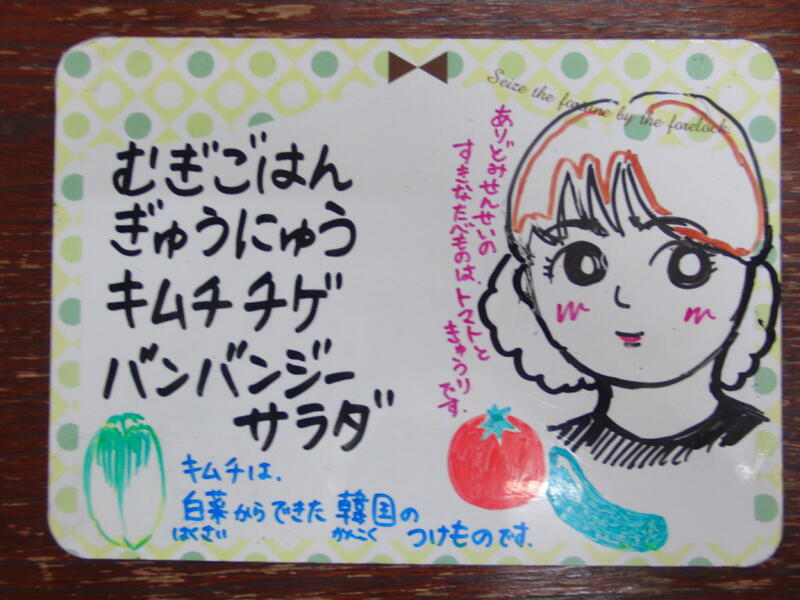 Seize the fortune by the forelock.
むぎごはん
ぎゅうにゅう
キムチチゲ
バンバンジー
サラダ
ありどみせんせいの
すきなたべものは、トマトと
きゅうりです。
キムチは、
白菜からできた韓国の
はくさい かんこく
つけものです。